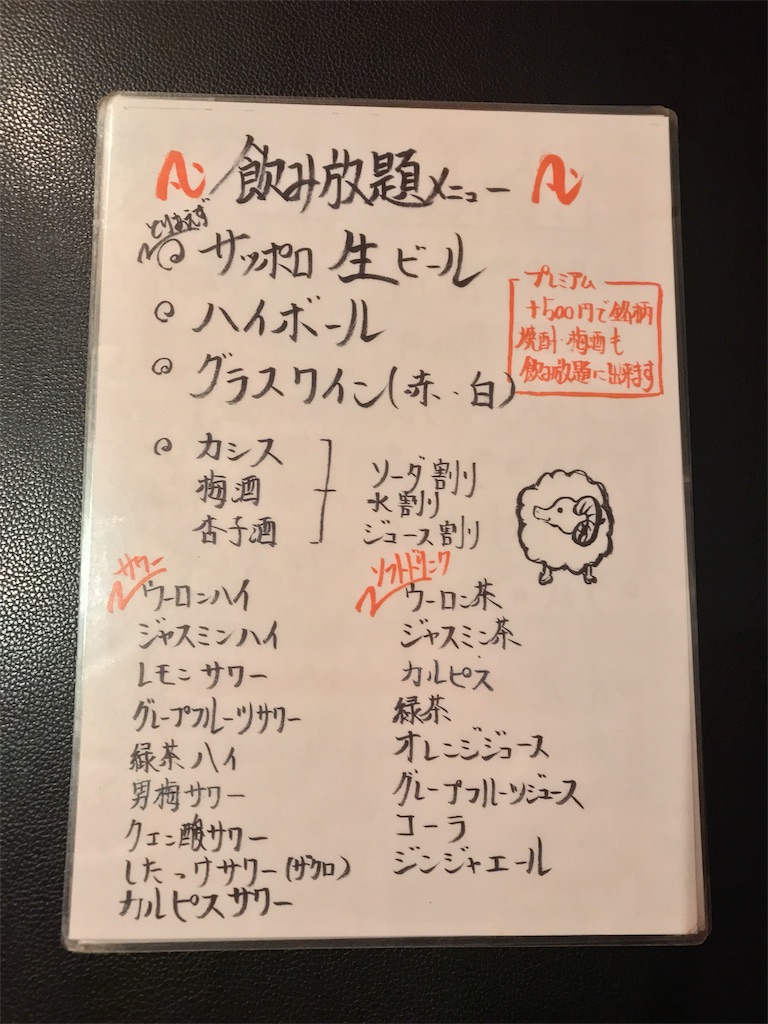 飲み放題メニュー
とりあえず
サッポロ 生ビール
ハイボール
グラスワイン(赤・白)
プレミアム
+500円で銘柄
焼酎・梅酒も
飲み放題に出来ます
カシス
梅酒
杏子酒
ソーダ割り
水割り
ジュース割り
サワー
ウーロンハイ
ジャスミンハイ
レモンサワー
グレープフルーツサワー
緑茶ハイ
男梅サワー
クエン酸サワー
したっけサワー(ザクロ)
カルピスサワー
ソフトドリンク
ウーロン茶
ジャスミン茶
カルピス
緑茶
オレンジジュース
グレープフルーツジュース
コーラ
ジンジャエール